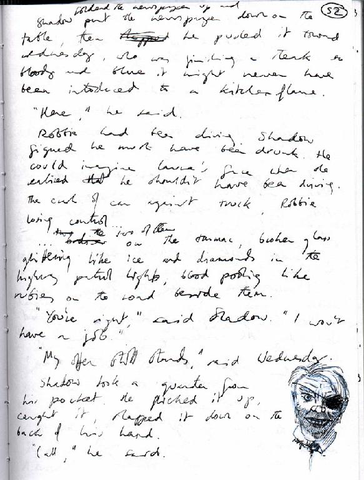 folded the newspaper up and
52
Shadow put the newspaper down on the
table, then he pushed it toward
Wednesday, who was finishing a steak so
bloody and blue it might never have
been introduced to a kitchen flame.
"Here," he said.
Robbie had been driving. Shadow
figured he must have been drunk. He
could imagine Laura's face when she
realised he shouldn't have been driving.
The crush of car against truck, Robbie
losing control
... two of them
on the tarmac, broken glass
glittering like ice and diamonds in the
highway patrol lights, blood pooling like
rubies on the road beside them.
"You're right," said Shadow. "I won't
have a job.
"My offer still stands," said Wednesday.
Shadow took a quarter from
his pocket. He flicked it up,
caught it, slapped it down on the
back of his hand.
"Call," he said.